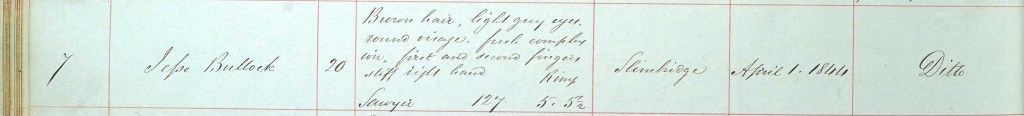 Brown hair, light grey eyes.
round visage. fresh complex
ion, first and second fingers
7 Jesse Bullock 20 stiff right hand Slimbridge April 1. 1844 Ditto
Sawyer 127 5. 5½